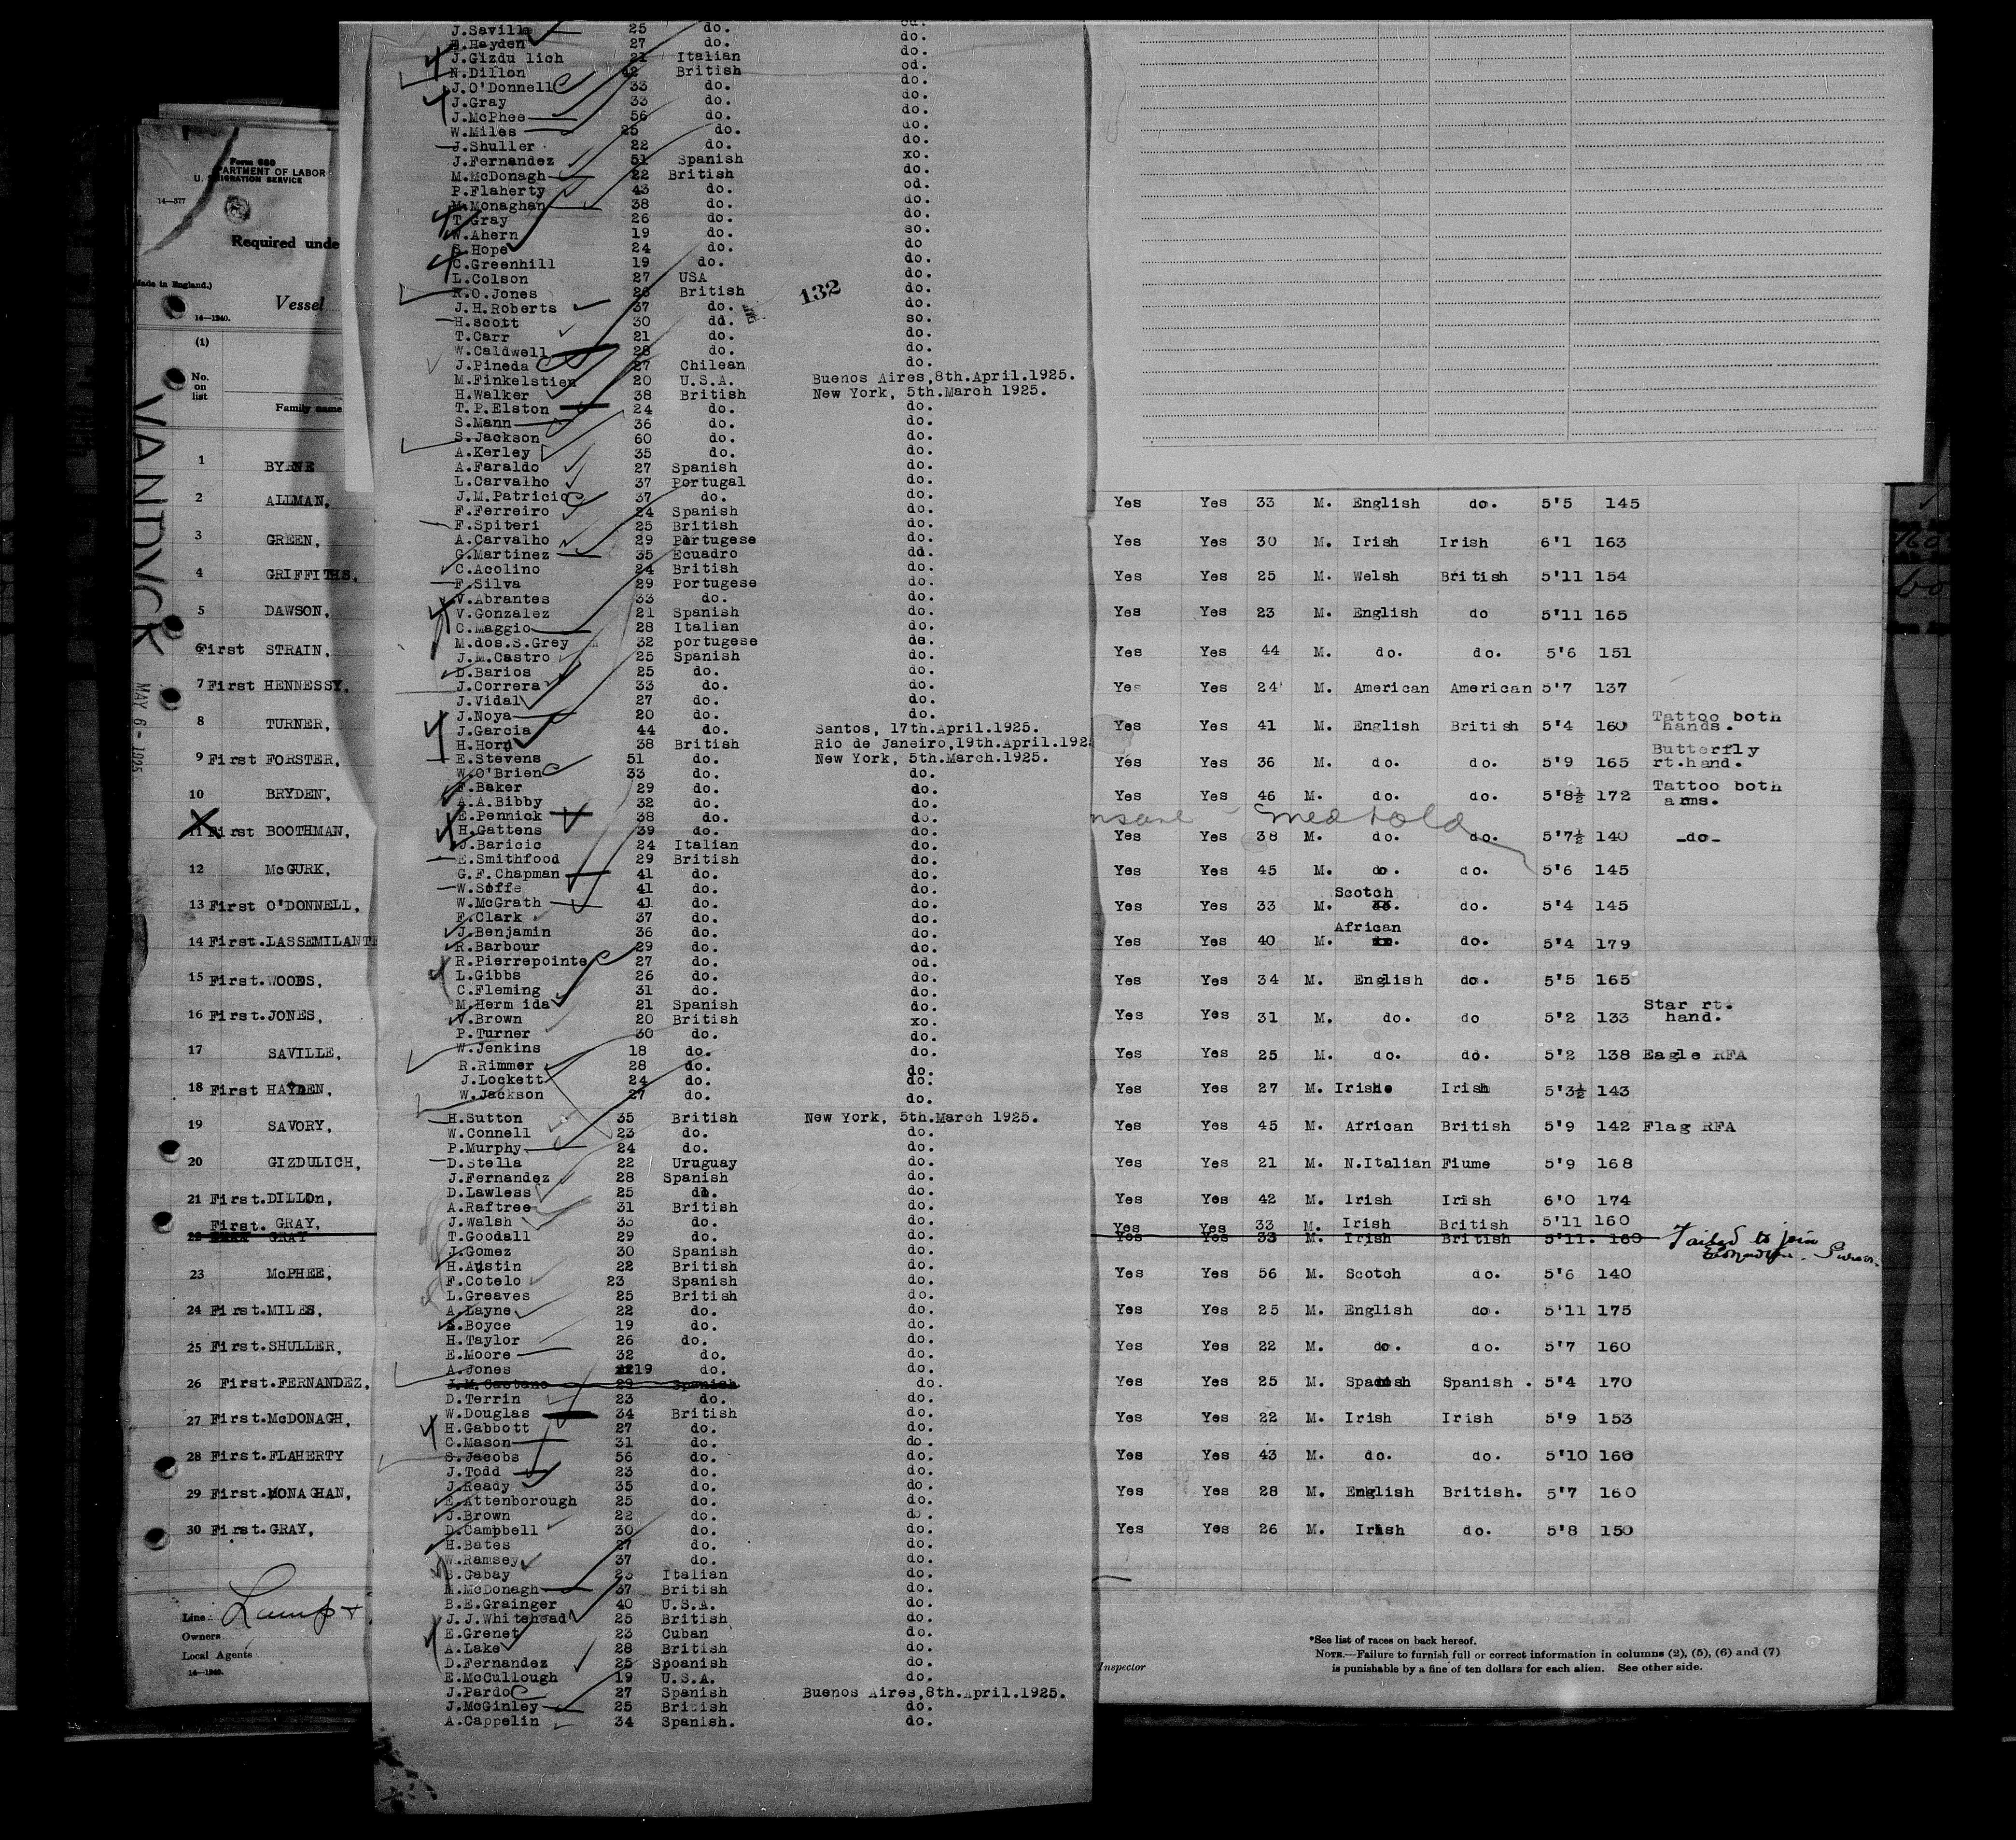 Form 680
U. S. IMMIGRATION SERVICE
14—577
Required unde
Made in England.)
Vessel
14—1240.
(1)
No.
on
list
Family name
VANDYCK
MAY 6 - 1925
1 BYRNE
2 ALLMAN,
3 GREEN,
4 GRIFFITHS,
5 DAWSON,
6 First STRAIN,
7 First HENNESSY,
8 TURNER,
9 First FORSTER,
10 BRYDEN,
11 First BOOTHMAN,
12 McGURK,
13 First O'DONNELL,
14 First. LASSEMILANTE
15 First. WOODS,
16 First. JONES,
17 SAVILLE,
18 First HAYDEN,
19 SAVORY,
20 GIZDULICH,
21 First. DILLOn,
First. GRAY,
22 GRAY
23 McPHEE,
24 First. MILES,
25 First. SHULLER,
26 First. FERNANDEZ,
27 First. McDONAGH,
28 First. FLAHERTY
29 First. MONAGHAN,
30 First. GRAY,
Line
Owners
Local Agents
14—1240.
J.Saville 25 do. od.
Hayden 27 do. do.
J.Gizdu lich 21 Italian do.
N.Dillon 42 British od.
J.O'Donnell 33 do. do.
J.Gray 33 do. do.
J.McPhee 56 do. do.
W.Miles 25 do. do.
J.Shuller 22 do. do.
J.Fernandez 51 Spanish xo.
M.McDonagh 22 British do.
P.Flaherty 43 do. od.
M.Monaghan 38 do. do.
T.Gray 26 do. do.
W.Ahern 19 do. so.
S.Hope 24 do. do
C.Greenhill 19 do. do.
L.Colson 27 USA do.
R.O.Jones 26 British do.
132
J.H.Roberts 37 do. do.
H.Scott 30 dd. so.
T.Carr 21 do. do.
W.Caldwell 28 do. do.
J.Pineda 27 Chilean do.
M.Finkelstien 20 U.S.A. Buenos Aires,8th.April.1925.
H.Walker 38 British New York, 5th.March 1925.
T.P.Elston 24 do. do.
S.Mann 36 do. do.
S.Jackson 60 do. do.
A.Kerley 35 do. do.
A.Faraldo 27 Spanish do.
L.Carvalho 37 Portugal do.
J.M.Patricio 37 do. do.
F.Ferreiro 24 Spanish do.
F.Spiteri 25 British do.
A.Carvalho 29 Portugese do.
G.Martinez 35 Ecuadro dd.
C.Acolino 24 British do.
F.Silva 29 Portugese do.
V.Abrantes 33 do. do.
V.Gonzalez 21 Spanish do.
C.Maggio 28 Italian do.
M.dos.S.Grey 32 portugese do.
J.M.Castro 25 Spanish do.
D.Barios 25 do. do.
J.Correra 33 do. do.
J.Vidal 27 do. do.
J.Noya 20 do. do.
J.Garcia 44 do. Santos, 17th.April.1925.
H.Horn 38 British Rio de Janeiro,19th.April.192
E.Stevens 51 do. New York, 5th.March.1925.
W.O'Brien 33 do. do.
F.Baker 29 do. do.
A.A.Bibby 32 do. do.
E.Pennick 38 do. do.
H.Gattens 39 do. do.
J.Baricic 24 Italian do.
E.Smithfood 29 British do.
G.F.Chapman 41 do. do.
W.Soffe 41 do. do.
W.McGrath 41 do. do.
F.Clark 37 do. do.
J.Benjamin 36 do. do.
R.Barbour 29 do. do.
R.Pierrepointe 27 do. od.
L.Gibbs 26 do. do.
C.Fleming 31 do. do.
M.Herm ida 21 Spanish do.
V.Brown 20 British xo.
P.Turner 30 do. do.
W.Jenkins 18 do. do.
R.Rimmer 28 do. do.
J.Lockett 24 do. do.
W.Jackson 27 do. do.
H.Sutton 35 British New York, 5th.March 1925.
W.Connell 23 do. do.
P.Murphy 24 do. do.
D.Stella 22 Uruguay do.
J.Fernandez 28 Spanish do.
D.Lawless 25 do. do.
A.Raftree 31 British do.
J.Walsh 33 do. do.
T.Goodall 29 do. do.
J.Gomez 30 Spanish do.
H.Austin 22 British do.
F.Cotelo 23 Spanish do.
L.Greaves 25 British do.
A.Layne 22 do. do.
Boyce 19 do. do.
H.Taylor 26 do. do.
E.Moore 32 do. do.
A.Jones 19 do. do.
J.M.Castano 29 Spanish do.
D.Terrin 23 do. do.
W.Douglas 34 British do.
H.Gabbott 27 do. do.
C.Mason 31 do. do.
S.Jacobs 56 do. do.
J.Todd 23 do. do.
J.Ready 35 do. do.
E.Attenborough 25 do. do.
J.Brown 22 do. do.
D.Campbell 30 do. do.
H.Bates 27 do. do.
W.Ramsey 37 do. do.
S.Gabay 23 Italian do.
M.McDonagh 37 British do.
B.E.Grainger 40 U.S.A. do.
J.J.Whitehead 25 British do.
E.Grenet 23 Cuban do.
A.Lake 28 British do.
D.Fernandez 25 Spoanish do.
E.McCullough 19 U.S.A. do.
J.Pardo 27 Spanish Buenos Aires,8th.April.1925.
J.McGinley 25 British do.
A.Cappelin 34 Spanish. do.
Yes Yes 33 M. English do. 5'5 145
Yes Yes 30 M. Irish Irish 6'1 163
Yes Yes 25 M. Welsh British 5'11 154
Yes Yes 23 M. English do 5'11 165
Yes Yes 44 M. do. do. 5'6 151
Yes Yes 24 M. American American 5'7 137
Yes Yes 41 M. English British 5'4 160 Tattoo both hands.
Yes Yes 36 M. do. do. 5'9 165 Butterfly rt.hand.
Yes Yes 46 M. do. do. 5'8½ 172 Tattoo both arms.
Yes Yes 38 M. do. do. 5'7½ 140 -do-
Yes Yes 45 M. do. do. 5'6 145
Yes Yes 33 M. Scotch do. 5'4 145
Yes Yes 40 M. African do. 5'4 179
Yes Yes 34 M. English do. 5'5 165
Yes Yes 31 M. do. do 5'2 133 Star rt. hand.
Yes Yes 25 M. do. do. 5'2 138 Eagle RFA
Yes Yes 27 M. Irish Irish 5'3½ 143
Yes Yes 45 M. African British 5'9 142 Flag RFA
Yes Yes 21 M. N.Italian Fiume 5'9 168
Yes Yes 42 M. Irish Irish 6'0 174
Yes Yes 33 M. Irish British 5'11 160
Yes Yes 33 M. Irish British 5'11. 160 Failed to join
Yes Yes 56 M. Scotch do. 5'6 140
Yes Yes 25 M. English do. 5'11 175
Yes Yes 22 M. do. do. 5'7 160
Yes Yes 25 M. Spanish Spanish . 5'4 170
Yes Yes 22 M. Irish Irish 5'9 153
Yes Yes 43 M. do. do. 5'10 160
Yes Yes 28 M. English British. 5'7 160
Yes Yes 26 M. Irish do. 5'8 150
Inspector
*See list of races on back hereof.
NOTE.—Failure to furnish full or correct information in columns (2), (5), (6) and (7)
is punishable by a fine of ten dollars for each alien. See other side.